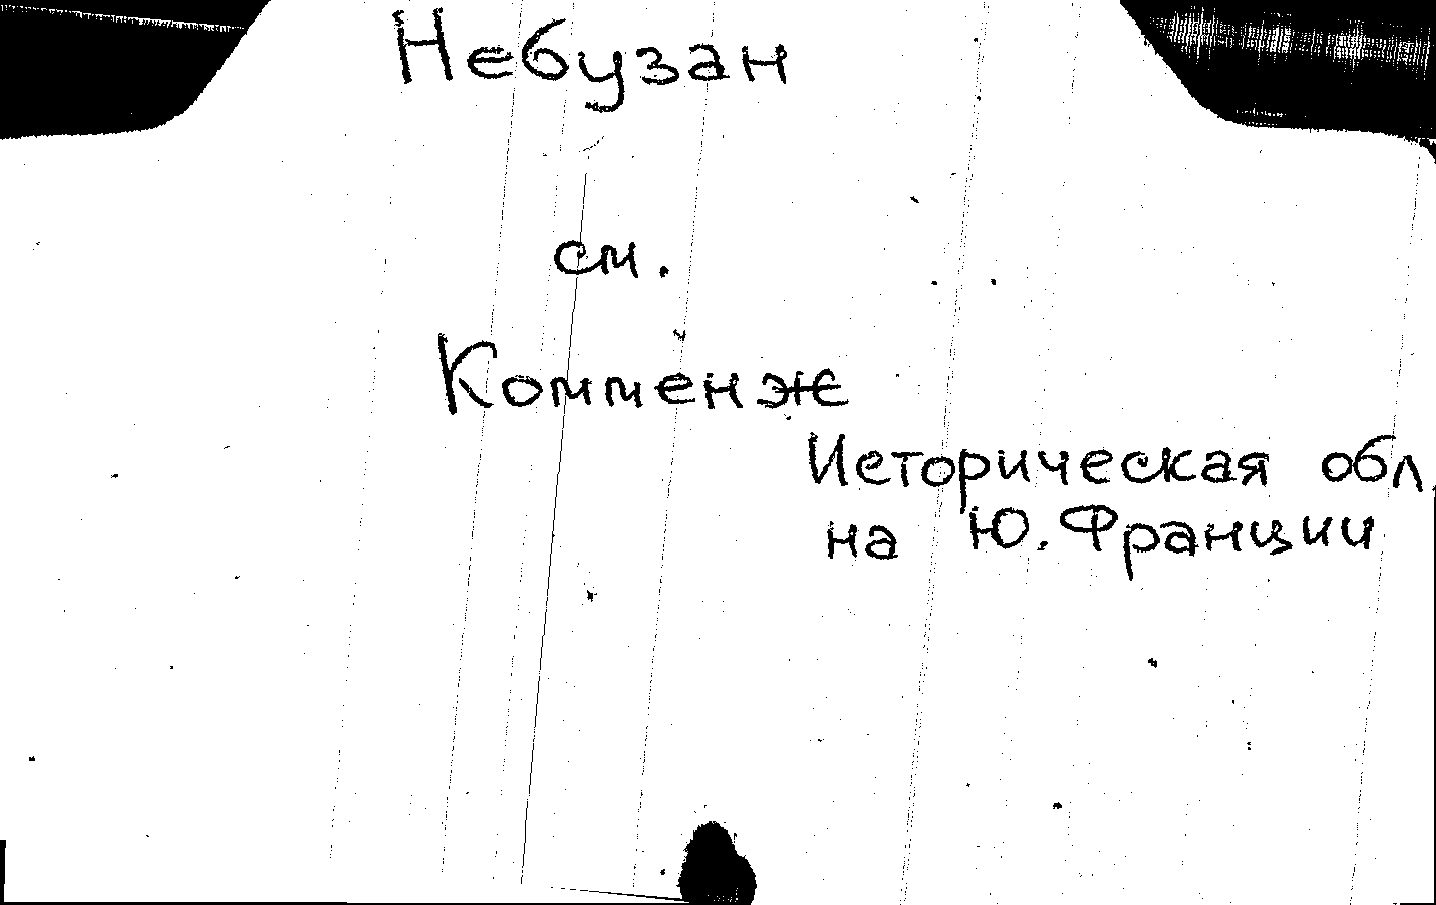 Небузан
см.
Комменж
Историческая обл.
на Ю. Франции